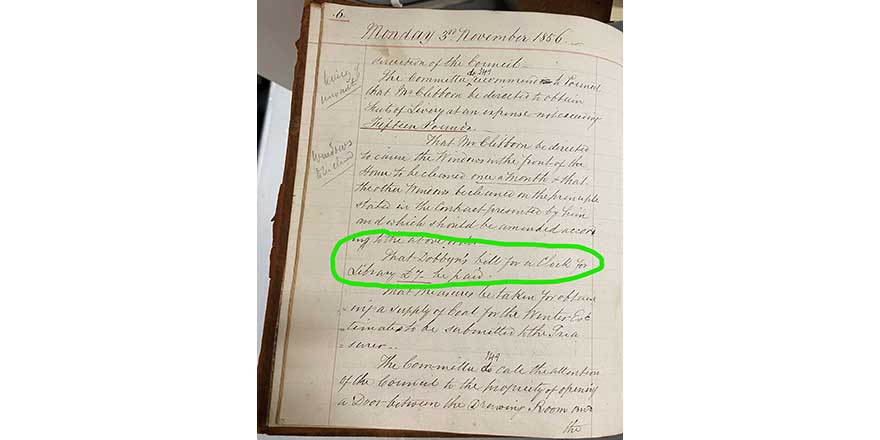 .6.
Monday 3rd November 1856.
direction of the Council.
The Committee do recommend to Council
that Mr Clibborn be directed to obtain
Suits of Livery at an expense not exceeding
Fifteen Pounds.
That Mr Clibborn be directed
to cause the Windows in the front of the
House to be cleaned once a Month & that
the other Windows be cleaned on the principle
stated in the Contract presented by him
and which should be amended accord
ing to the above order.
Windows
to be cleaned
That Dobbyn's bill for a Clock for
Library £7 - be paid.
That Measures be taken for obtain
=ing a supply of Coal for the Winter. Es
timates to be submitted to the Trea
=surer -
The Committee do call the attention
of the Council to the propriety of opening
a Door between the Drawing Room and
the